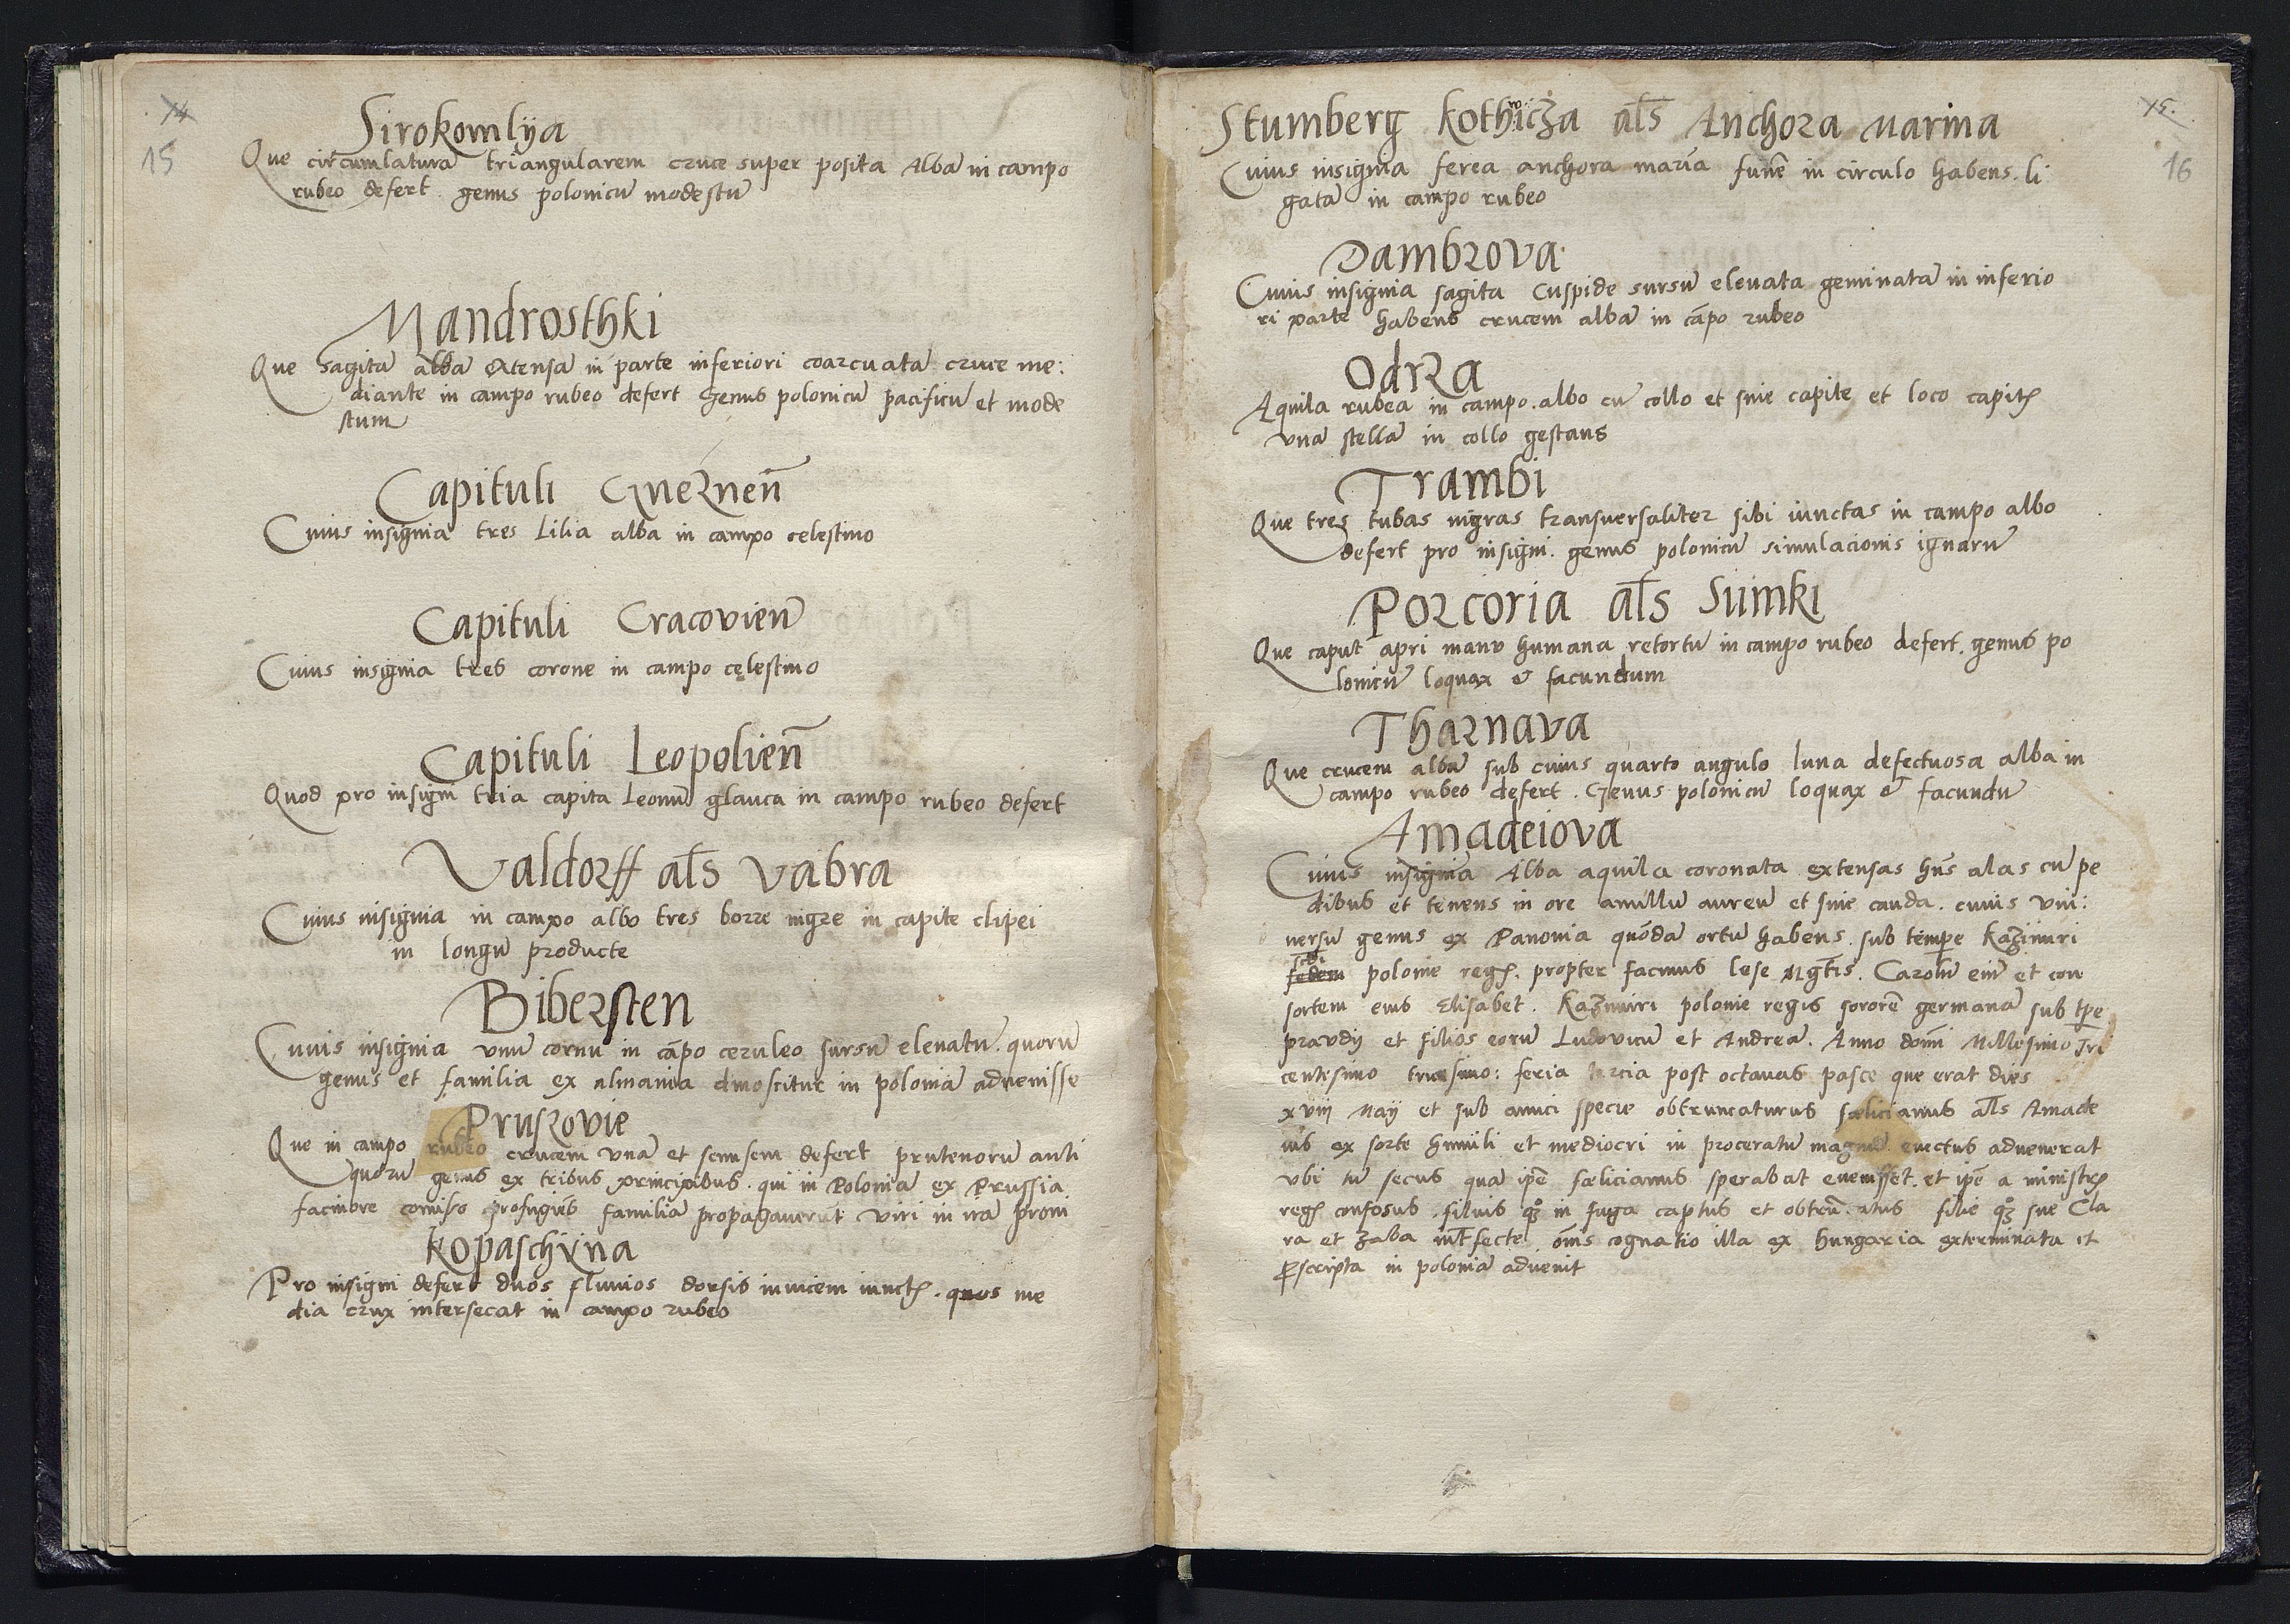 14
15
Sirokomlÿa
Que circumlaturã triangularem cruce super posita Albã in campo
rubeo defert. genus polonicũ modestũ
Mandrosthki
Que sagitã albã extensã in parte inferiori coarcuatã cruce me:
diante in campo rubeo defert Genus polonicũ pacificũ et mode
stum
Capituli Gneznen̄
Cuius insignia tres Lilia alba in campo celestino
Capituli Cracovien̄
Cuius insignia tres corone in campo cęlestino
Capituli Leopolien̄
Quod pro insigni tria capita Leonũ glauca in campo rubeo defert
Valdorff als̄ Vabra
Cuius insignia in campo albo tres borre nigre in capite clipei
in longũ producte
Bibersten
Cuius insignia vnũ cornu in cãpo ceruleo sursũ eleuatũ. quorũ
genus et familia ex almania dinoscitur in poloniã aduenisse
Pruszovie
Que in campo rubeo crucem vnã et semisem defert prutenorũ anti
quorũ genus ex tribus principibus. qui in Poloniã ex Prussia
facinore comisso profugiẽs familiã propagauerũt viri in irã proni
Kopaschÿna
Pro insigni defert duos fluuios dorsis inuicem iunctꝭ. quos me
dia crux intersecat in campo rubeo
15.
16
Stumberg Kothwicza als̄ Anchora Marina
Cuius insignia ferea anchora mar̃ia funẽ in circulo habens. li
gatã in campo rubeo
Dambrova
Cuius insignia sagita Cuspide sursũ eleuata geminatã in inferio
ri parte habens crucem albã in cãpo rubeo
Odrza
Aquila rubea in campo. albo cũ collo et sine capite et loco capitꝭ
vnã stellã in collo gestans
Trambi
Que tres tubas nigras transuersaliter sibi iunctas in campo albo
defert pro insigni. genus polonicũ simulacionis ignarũ
Porcoria als̄ Suinki
Que caput apri manu humana retortũ in campo rubeo defert. genus po
lonicũ loquax & facundum
Tharnava
Que crucem albã sub cuius quarto angulo luna defectuosa alba in
campo rubeo defert. Genus polonicũ loquax & facundũ
Amadeiova
Cuius insignia Alba aquila coronata extensas hñs alas cũ pe
dibus et tenens in ore anullũ aureũ et sine cauda. cuius vni:
uersũ genus ex Panonia quõdã ortũ habens. sub tẽmpe Kazimiri
polonie regꝭ. propter facinus lese Mgt̃is. Carolũ eiñ et con
sortem eius Elisabet. Kazimiri polonie regis sororẽ germanã sub tp̃e
prandij et filios eorũ Ludovicũ et Andreã. Anno dom̃i Millesimo Tri
centesimo tricesimo: feria tercia post octauas pasce que erat dies
xviij Maij et sub amici specie obtruncaturus fęlicianus als̄ Amade
ius ex sorte humili et mediocri in proceratũ magnũ euectus aduenerat
vbi tũ secus quã ip̃e fęlicianus sperabat euenisset. et ip̃e a ministrꝭ
regꝭ confosus. filius qꝫ in fuga captus et obtrũcatus filie qꝫ sue Cla
ra et Zaba int̃fecte om̃is cognatio illa ex hungaria exterminata et
ꝓscripta in poloniã aduenit